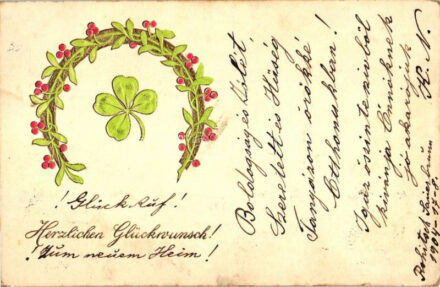 ! Glück auf !
Herzlichen Glückwunsch!
! Zum neuem Heim !
Boldogság és Élet,
Szeretett és Hűség
Tanyázon örökké
Otthonukban!
Igaz őszinte szivből
kivánja Önöknek
jó akarójuk
H. N.